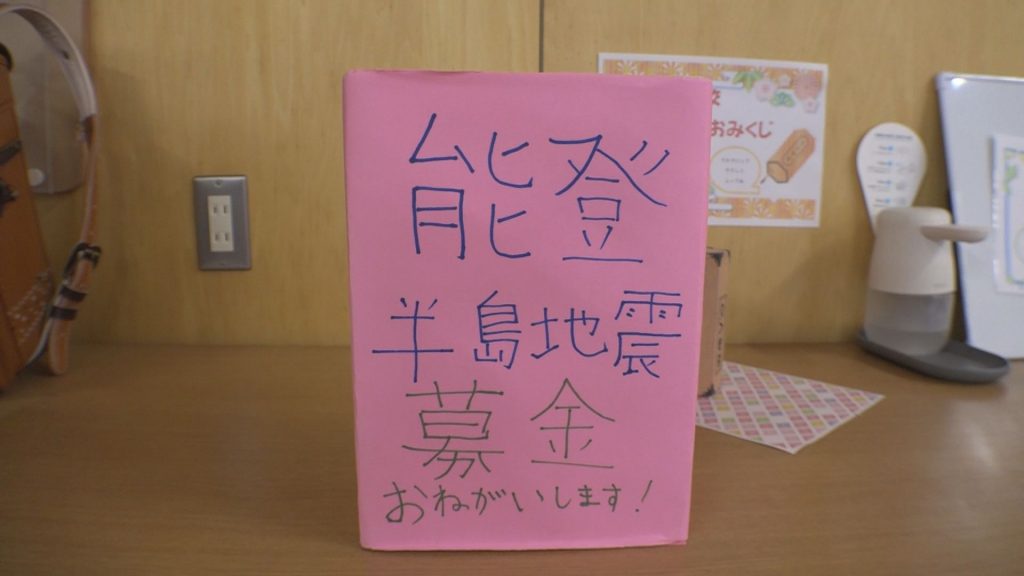 能登
半島地震
募金
おねがいします!
おみくじ